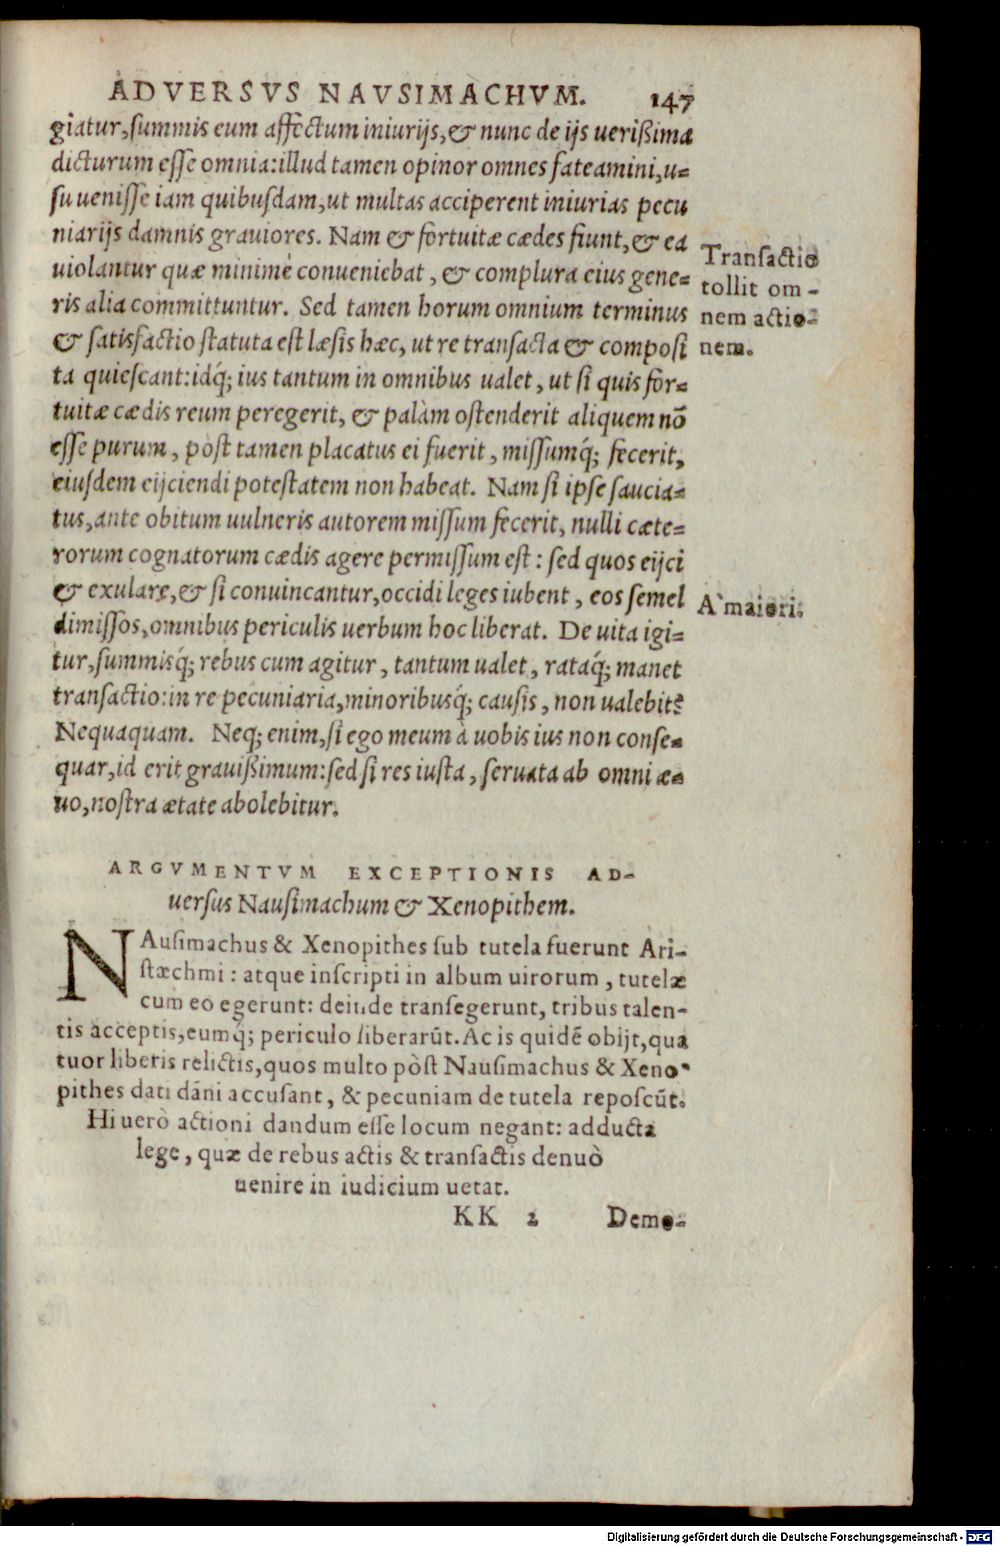 ADVERSVS NAVSIMACHVM. 147
giatur, summis eum affectum iniurijs, & nunc de ijs uerißima
dicturum esse omnia: illud tamen opinor omnes fateamini, u-
su uenisse iam quibusdam, ut multas acciperent iniurias pecu
niarijs damnis grauiores. Nam & fortuitæ cædes fiunt, & ea
uiolantur quæ minimè conueniebat, & complura eius gene-
ris alia committuntur. Sed tamen horum omnium terminus
& satisfactio statuta est læsis hæc, ut re transacta & composi
ta quiescant: idq́; ius tantum in omnibus ualet, ut si quis for-
tuitæ cædis reum peregerit, & palàm ostenderit aliquem nō
esse purum, pòst tamen placatus ei fuerit, missumq́; fecerit,
eiusdem eijciendi potestatem non habeat. Nam si ipse saucia-
tus, ante obitum uulneris autorem missum fecerit, nulli cæte-
rorum cognatorum cædis agere permissum est: sed quos eijci
& exulare, & si conuincantur, occidi leges iubent, eos semel
dimissos, omnibus periculis uerbum hoc liberat. De uita igi-
tur, summisq́; rebus cum agitur, tantum ualet, rataq́; manet
transactio: in re pecuniaria, minoribusq́; causis, non ualebit?
Nequaquam. Neq; enim, si ego meum à uobis ius non conse-
quar, id erit grauißimum: sed si res iusta, seruata ab omni æ-
uo, nostra ætate abolebitur.
Transactio
tollit om-
nem actio-
nem.
A` maiori.
ARGVMENTVM EXCEPTIONIS AD-
uersus Nausimachum & Xenopithem.
NAusimachus & Xenopithes sub tutela fuerunt Ari-
stæchmi: atque inscripti in album uirorum, tutelæ
cum eo egerunt: deinde transegerunt, tribus talen-
tis acceptis, eumq́; periculo liberarūt. Ac is quidē obijt, qua
tuor liberis relictis, quos multo pòst Nausimachus & Xeno-
pithes dati dāni accusant, & pecuniam de tutela reposcūt.
Hi uerò actioni dandum esse locum negant: adducta
lege, quæ de rebus actis & transactis denuò
uenire in iudicium uetat.
KK 2 Demo-
Digitalisierung gefördert durch die Deutsche Forschungsgemeinschaft - DFG